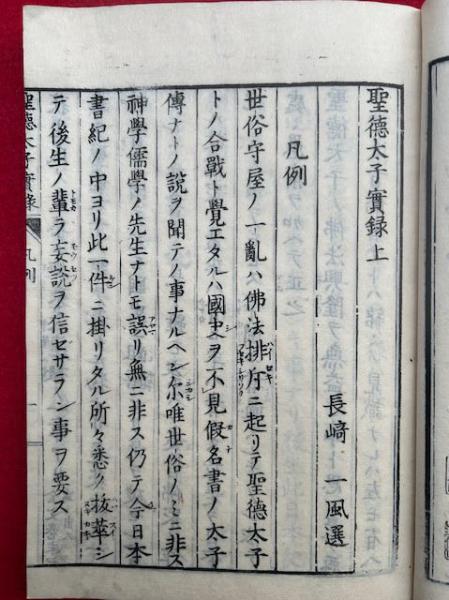 聖德太子實録上
長﨑 一風選
凡例
世俗守屋ノ一亂ハ佛法排斥ニ起リテ聖德太子
トノ合戰ト覺エタルハ國史ヲ不見假名書ノ太子
傳ナトノ說ヲ聞テノ事ナルヘシ尓唯世俗ノミニ非ス
神學儒學ノ先生ナトモ誤リ無ニ非ス仍テ今日本
書紀ノ中ヨリ此一件ニ掛リタル所々悉ク抜萃シ
テ後生ノ輩ラ妄說ヲ信セサラン事ヲ要ス
聖德太子實錄 凡例 一